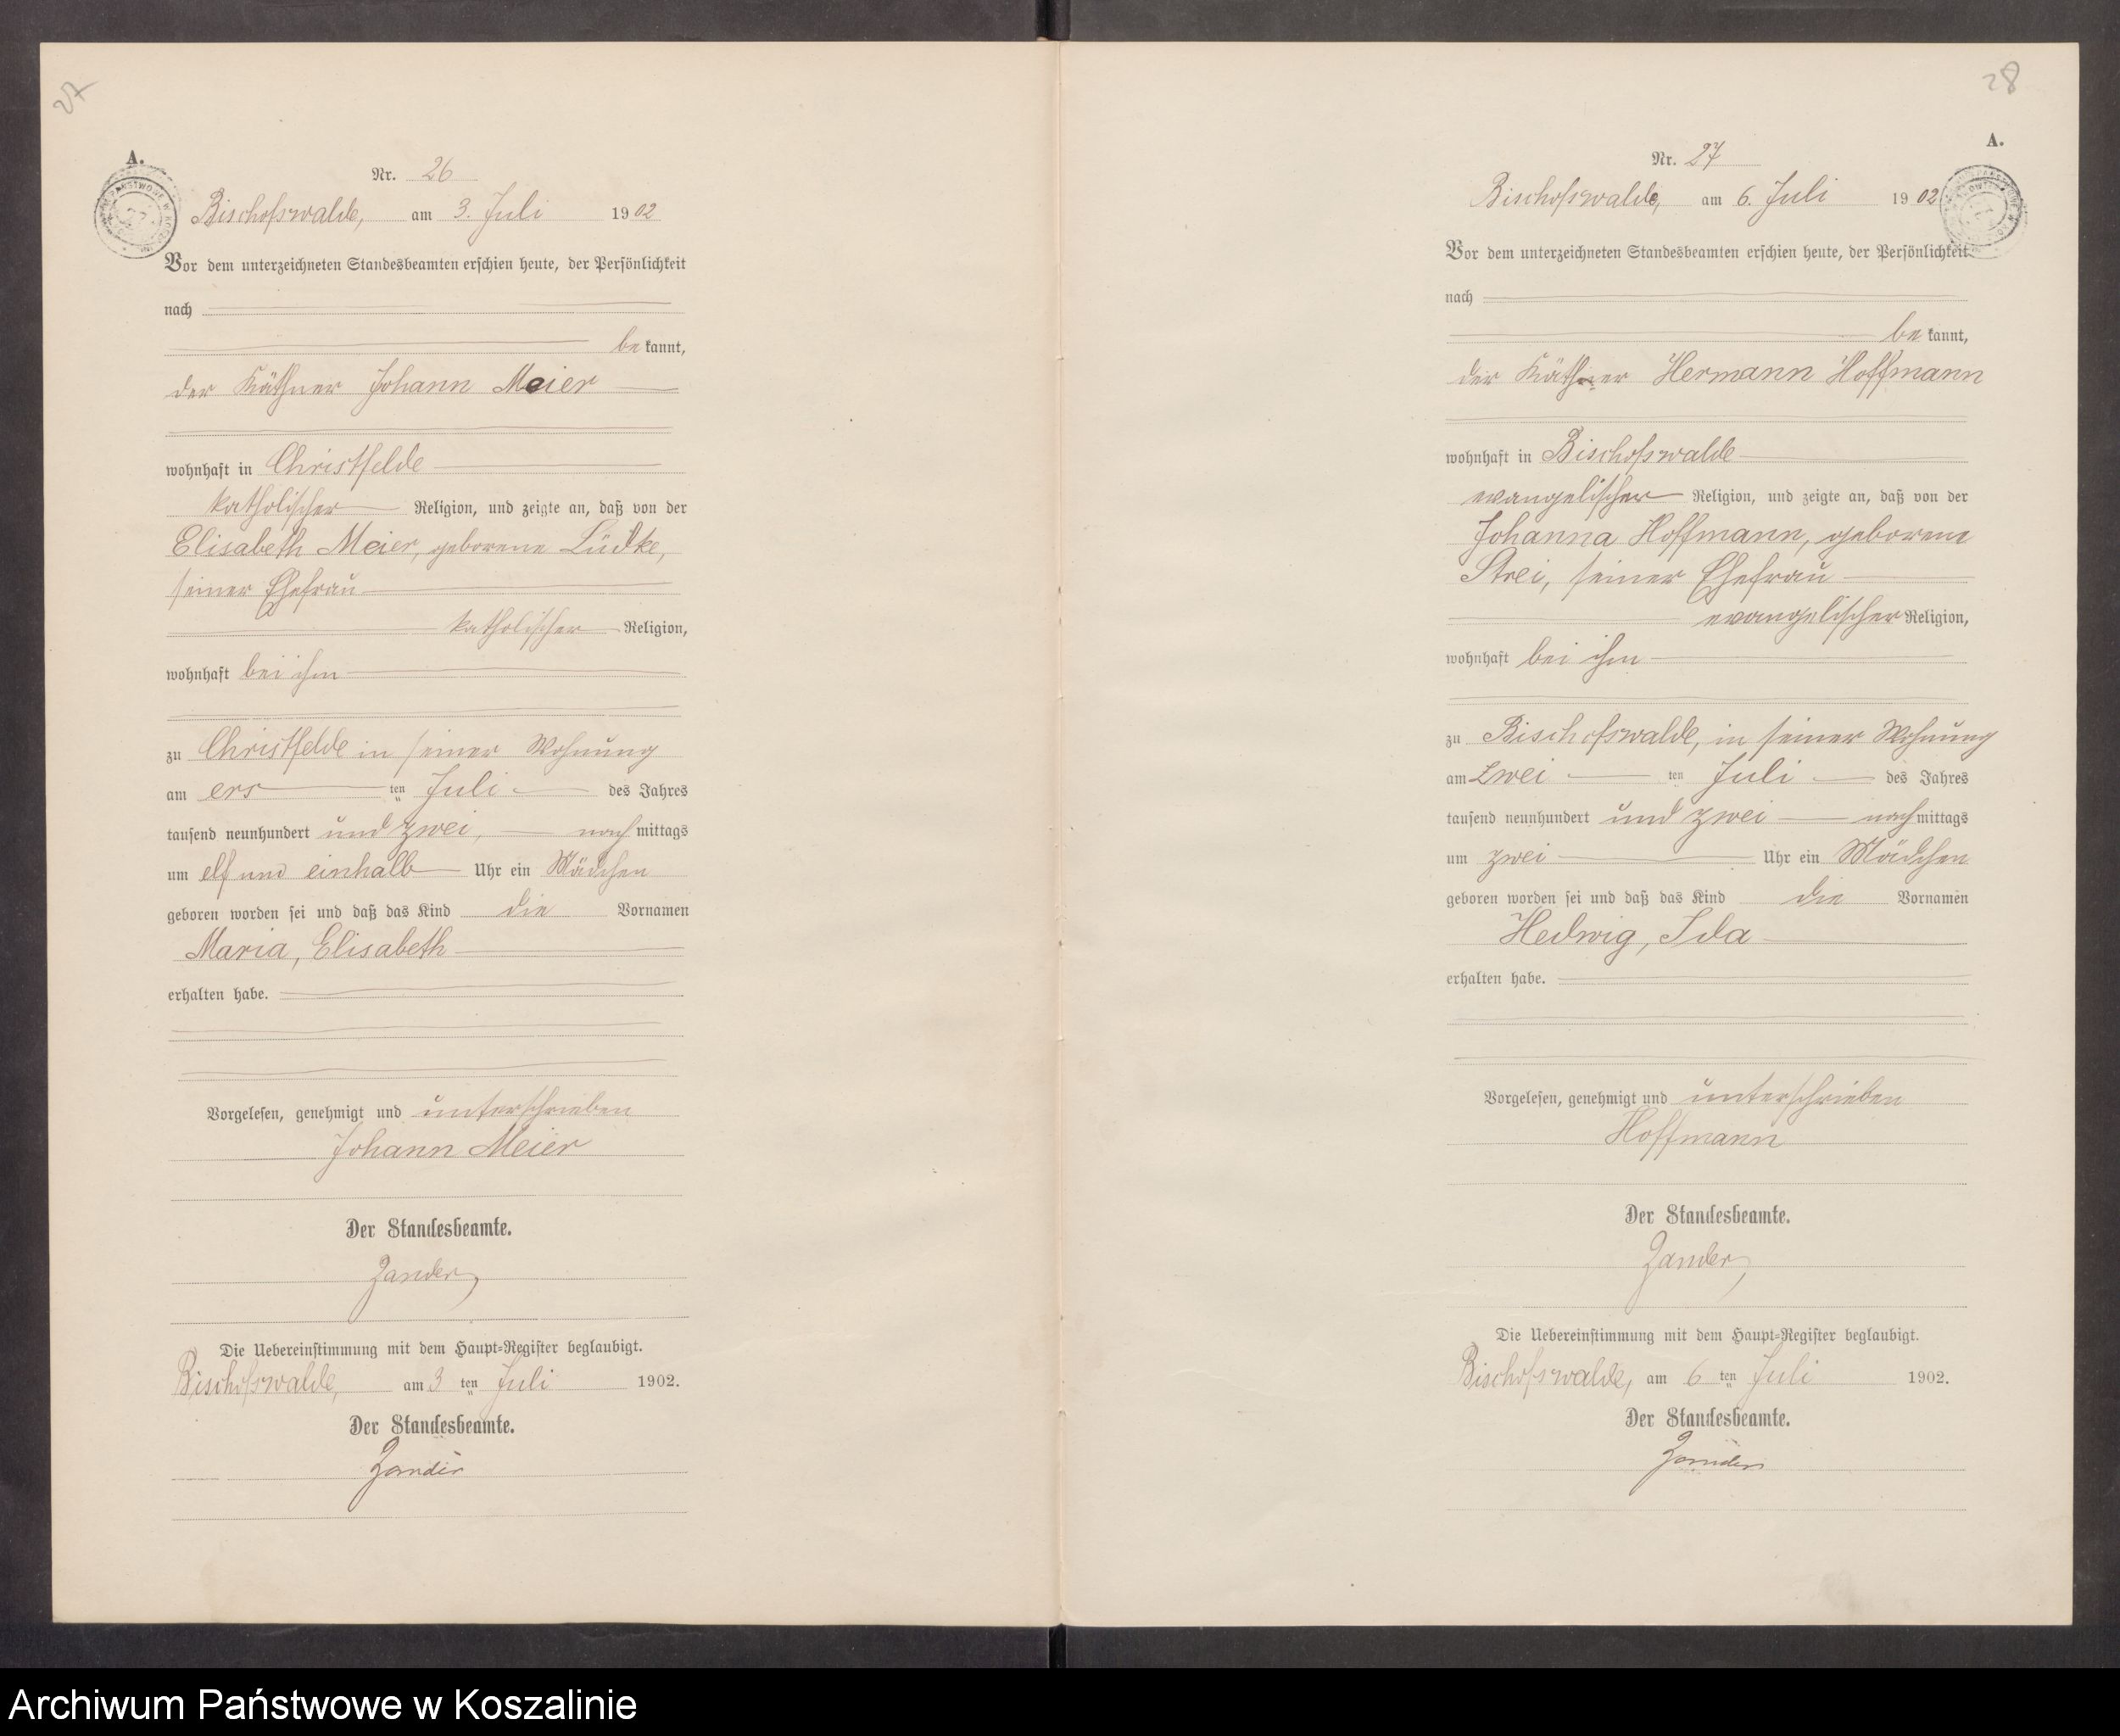 27
A.
Nr. 26
Bischofswalde, am 3. Juli 1902
Vor dem unterzeichneten Standesbeamten erschien heute, der Persönlichkeit
nach
bekannt,
der Käthner Johann Meier
wohnhaft in Christfelde
katholischer Religion, und zeigte an, daß von der
Elisabeth Meier, geborene Lüdke,
seiner Ehefrau
katholischer Religion,
wohnhaft bei ihm
zu Christfelde in seiner Wohnung
am ersten Juli des Jahres
tausend neunhundert und zwei, nachmittags
um elf und einhalb Uhr ein Mädchen
geboren worden sei und daß das Kind die Vornamen
Maria, Elisabeth
erhalten habe.
Vorgelesen, genehmigt und unterschrieben
Johann Meier
Der Standesbeamte.
Zander
Die Uebereinstimmung mit dem Haupt-Register beglaubigt.
Bischofswalde, am 3ten Juli 1902.
Der Standesbeamte.
Zander
28
A.
Nr. 27
Bischofswalde, am 6. Juli 1902
Vor dem unterzeichneten Standesbeamten erschien heute, der Persönlichkeit
nach
bekannt,
der Käthner Hermann Hoffmann
wohnhaft in Bischofswalde
evangelischer Religion, und zeigte an, daß von der
Johanna Hoffmann, geborene
Strei, seiner Ehefrau
evangelischer Religion,
wohnhaft bei ihm
zu Bischofswalde, in seiner Wohnung
am zweiten Juli des Jahres
tausend neunhundert und zwei nachmittags
um zwei Uhr ein Mädchen
geboren worden sei und daß das Kind die Vornamen
Hedwig, Ida
erhalten habe.
Vorgelesen, genehmigt und unterschrieben
Hoffmann
Der Standesbeamte.
Zander
Die Uebereinstimmung mit dem Haupt-Register beglaubigt.
Bischofswalde, am 6ten Juli 1902.
Der Standesbeamte.
Zander
Archiwum Państwowe w Koszalinie